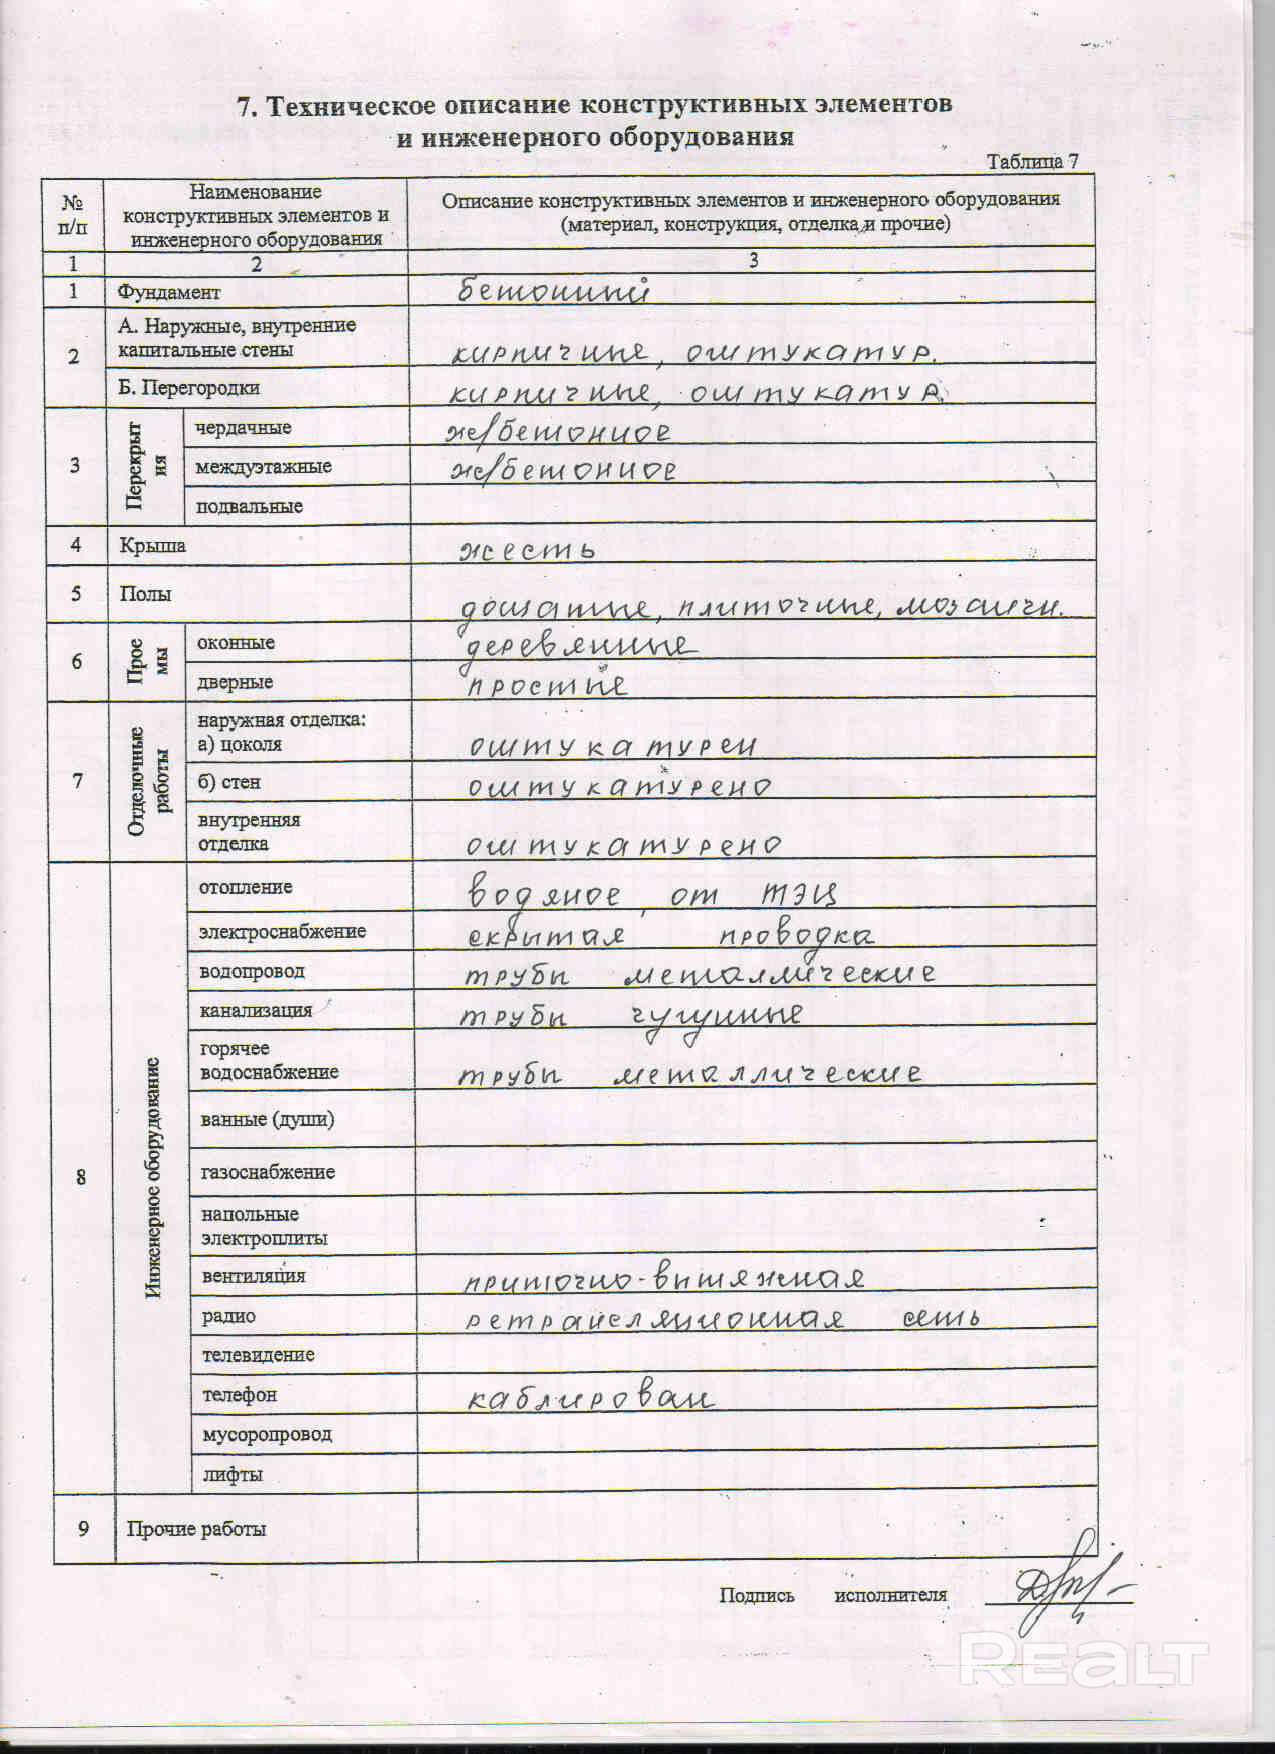 7. Техническое описание конструктивных элементов
и инженерного оборудования
Таблица 7
№ п/п
Наименование конструктивных элементов и инженерного оборудования
Описание конструктивных элементов и инженерного оборудования (материал, конструкция, отделка и прочие)
1 2 3
1 Фундамент бетонный
2 А. Наружные, внутренние
капитальные стены кирпичные, оштукатур.
Б. Перегородки кирпичные, оштукатур.
3 Перекрытия
чердачные ж/бетонное
междуэтажные ж/бетонное
подвальные
4 Крыша жесть
5 Полы дощатые, плиточные, мозаичн.
6 Проемы
оконные деревянные
дверные простые
7 Отделочные работы
наружная отделка:
а) цоколя оштукатурен
б) стен оштукатурено
внутренняя
отделка оштукатурено
8 Инженерное оборудование
отопление водяное, от ТЭЦ
электроснабжение скрытая проводка
водопровод трубы металлические
канализация трубы чугунные
горячее
водоснабжение трубы металлические
ванные (души)
газоснабжение
напольные
электроплиты
вентиляция приточно-вытяжная
радио ретрансляционная сеть
телевидение
телефон каблирован
мусоропровод
лифты
9 Прочие работы
Подпись исполнителя
REALT